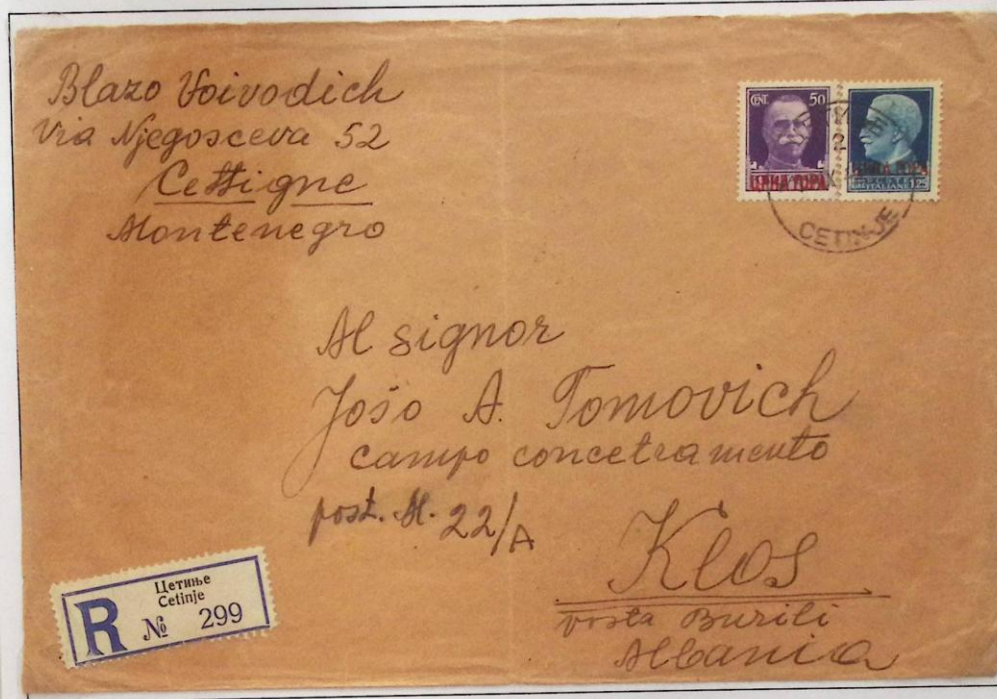 Blazo Voivodich
Via Njegosceva 52
Cettigne
Montenegro
CENT. 50
ЦРНА ГОРА
ЦРНА ГОРА
ITALIANE 1,25
CETINJE
Al signor
Jošo A. Tomovich
campo concetramento
post. M. 22/A
Klos
posta Burili
Albania
Цетиње
Cetinje
R № 299